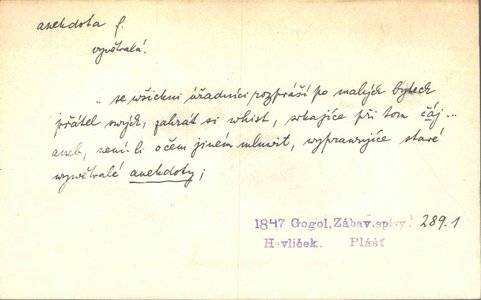 anekdota f.
vyvětralá.
„ se wšickni úřadníci rozpráší po malých bytech
přátel swých, zahrát si whist, srkajíce při tom čáj ...
aneb, není-li o čem jiném mluwit, wyprawujíce staré
wywětralé anekdoty;
1847 Gogol, Zábav. spisy. 289.1
Havlíček. Plášť